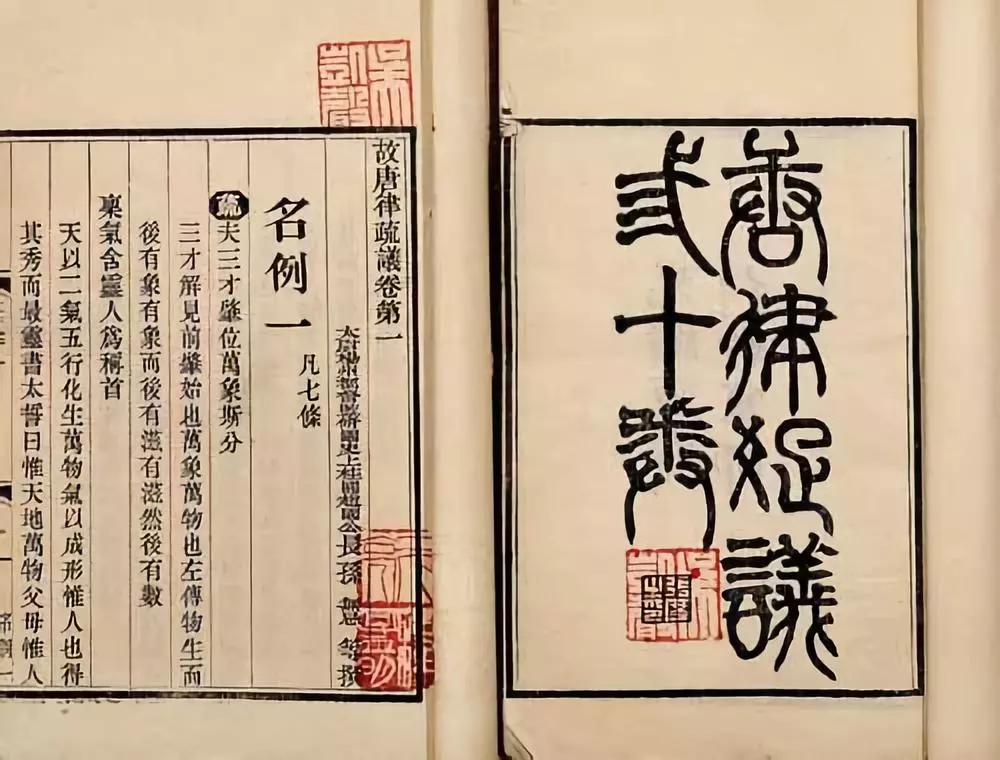 唐律疏議
弎十卷
吳凱聲
吳凱聲
故唐律疏議卷第一
太尉揚州都督監修國史上柱國趙國公長孫無忌等撰
名例一 凡七條
疏夫三才肇位萬象斯分
三才解見前肇始也萬象萬物也左傳物生而
後有象有象而後有滋有滋然後有數
稟氣含靈人爲稱首
天以二氣五行化生萬物氣以成形惟人也得
其秀而最靈書太誓曰惟天地萬物父母惟人